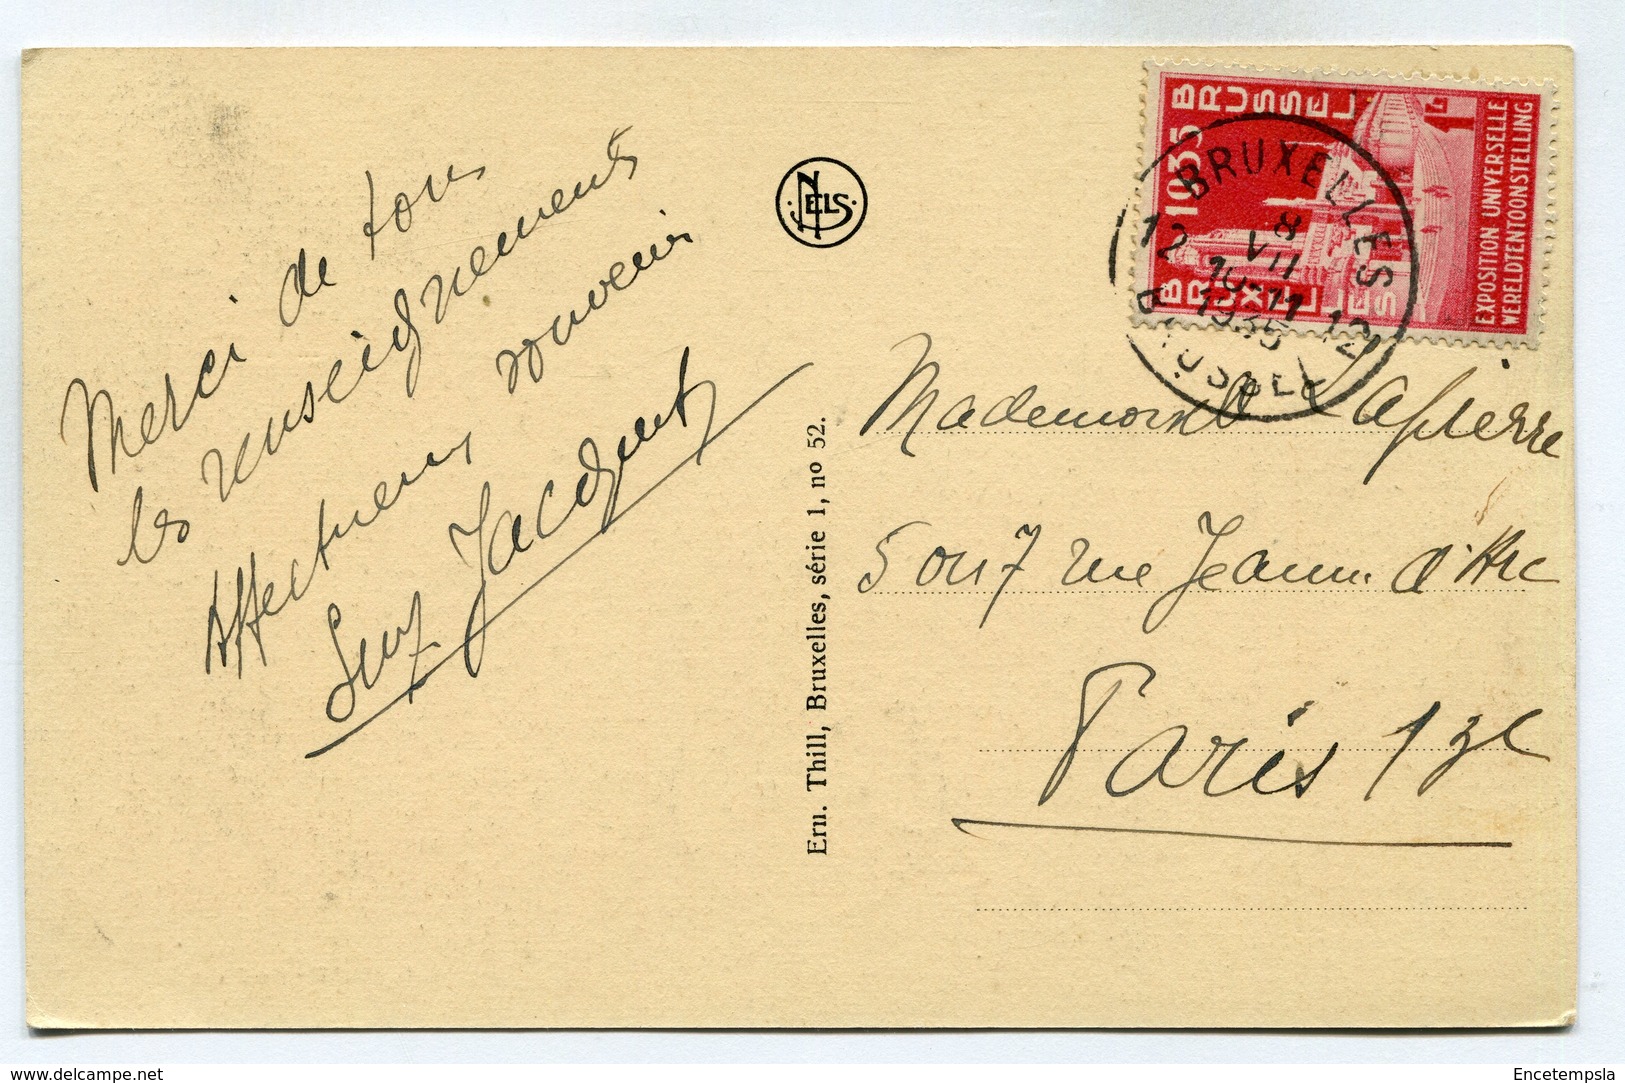 Merci de tous
les renseignements
Affectueux souvenir
Suz Jacquent
NELS
Ern. Thill, Bruxelles, série 1, no 52.
BRUSSEL
1935
BRUXELLES
EXPOSITION UNIVERSELLE
WERELDTENTOONSTELLING
1F
BRUXELLES
12 12
8
VII
10-11
1935
BRUSSEL
Mademoiselle Lapierre
5 ou 7 rue Jeanne d'Arc
Paris 13e
delcampe.net
Encetempsla